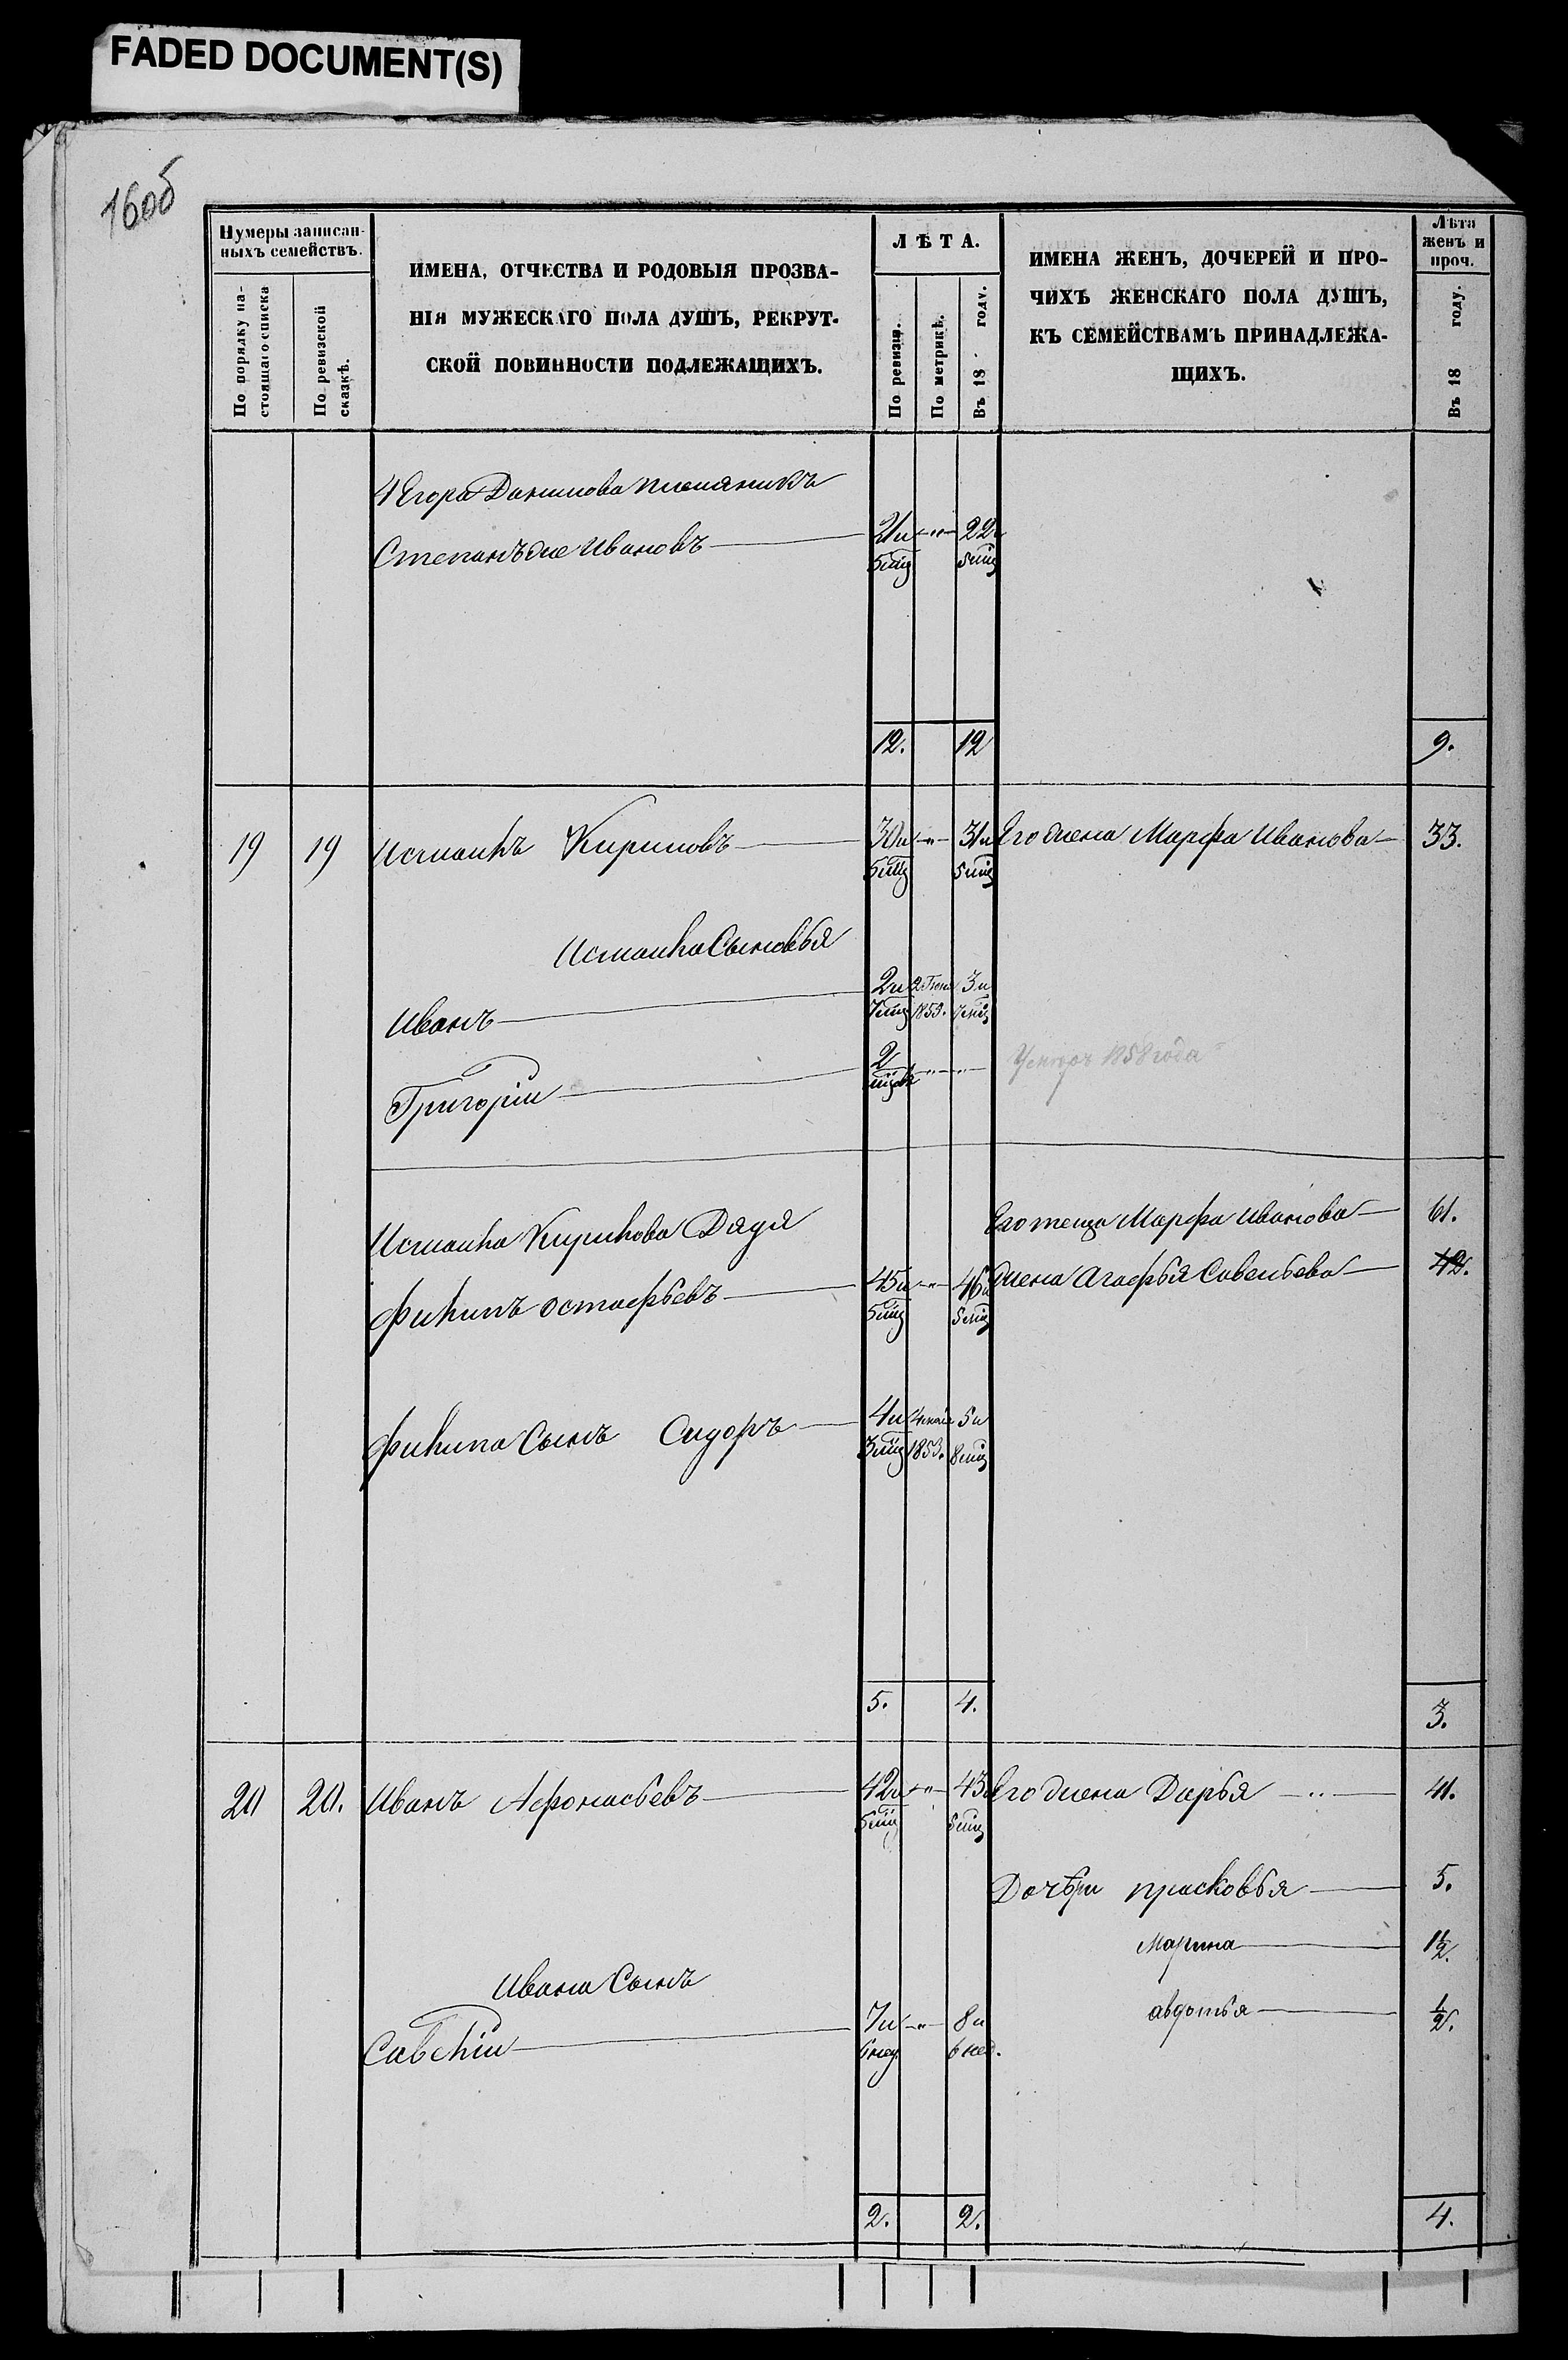 FADED DOCUMENT(S)
16об
Нумеры записан-
ныхъ семействъ.
По порядку на-
стоящаго списка
По ревизской
сказкѣ.
ИМЕНА, ОТЧЕСТВА И РОДОВЫЯ ПРОЗВА-
НІЯ МУЖЕСКАГО ПОЛА ДУШЪ, РЕКРУТ-
СКОЙ ПОВИННОСТИ ПОДЛЕЖАЩИХЪ.
ЛѢТА.
По ревизіи.
По метрикѣ.
Въ 18 году.
ИМЕНА ЖЕНЪ, ДОЧЕРЕЙ И ПРО-
ЧИХЪ ЖЕНСКАГО ПОЛА ДУШЪ,
КЪ СЕМЕЙСТВАМЪ ПРИНАДЛЕЖА-
ЩИХЪ.
Лѣта
женъ и
проч.
Въ 18 году.
4 Егора Данилова племяникъ
Степанъ же Ивановъ 21 и 22 и
5 мц 5 мц
12. 12 9.
19 19 Исмаилъ Кириловъ 30 и 31 и Его жена Марфа Иванова 33.
5 мц 5 мц
Исмаила Сыновья
Иванъ 2 и 3 и
7 мц 1853. 7 мц
Григорій 2 1858 года
Исмаила Кирилова Дядя Его теща Марфа Иванова 61.
Филипъ Остафьевъ 45 и 46 и жена Агафья Савельева 42.
5 мц 5 мц
Филипа Сынъ Сидоръ 4 и 5 и
3 мц 1853. 8 мц
5. 4. 3.
20 20. Иванъ Афонасьевъ 42 и 43 и Его жена Дарья 41.
5 мц 5 мц
Дочѣри прасковья 5.
Марина 1½.
Ивана Сынъ
авдотья ½.
Савелій 7 и 8 и
6 нед. 6 нед.
2. 2. 4.